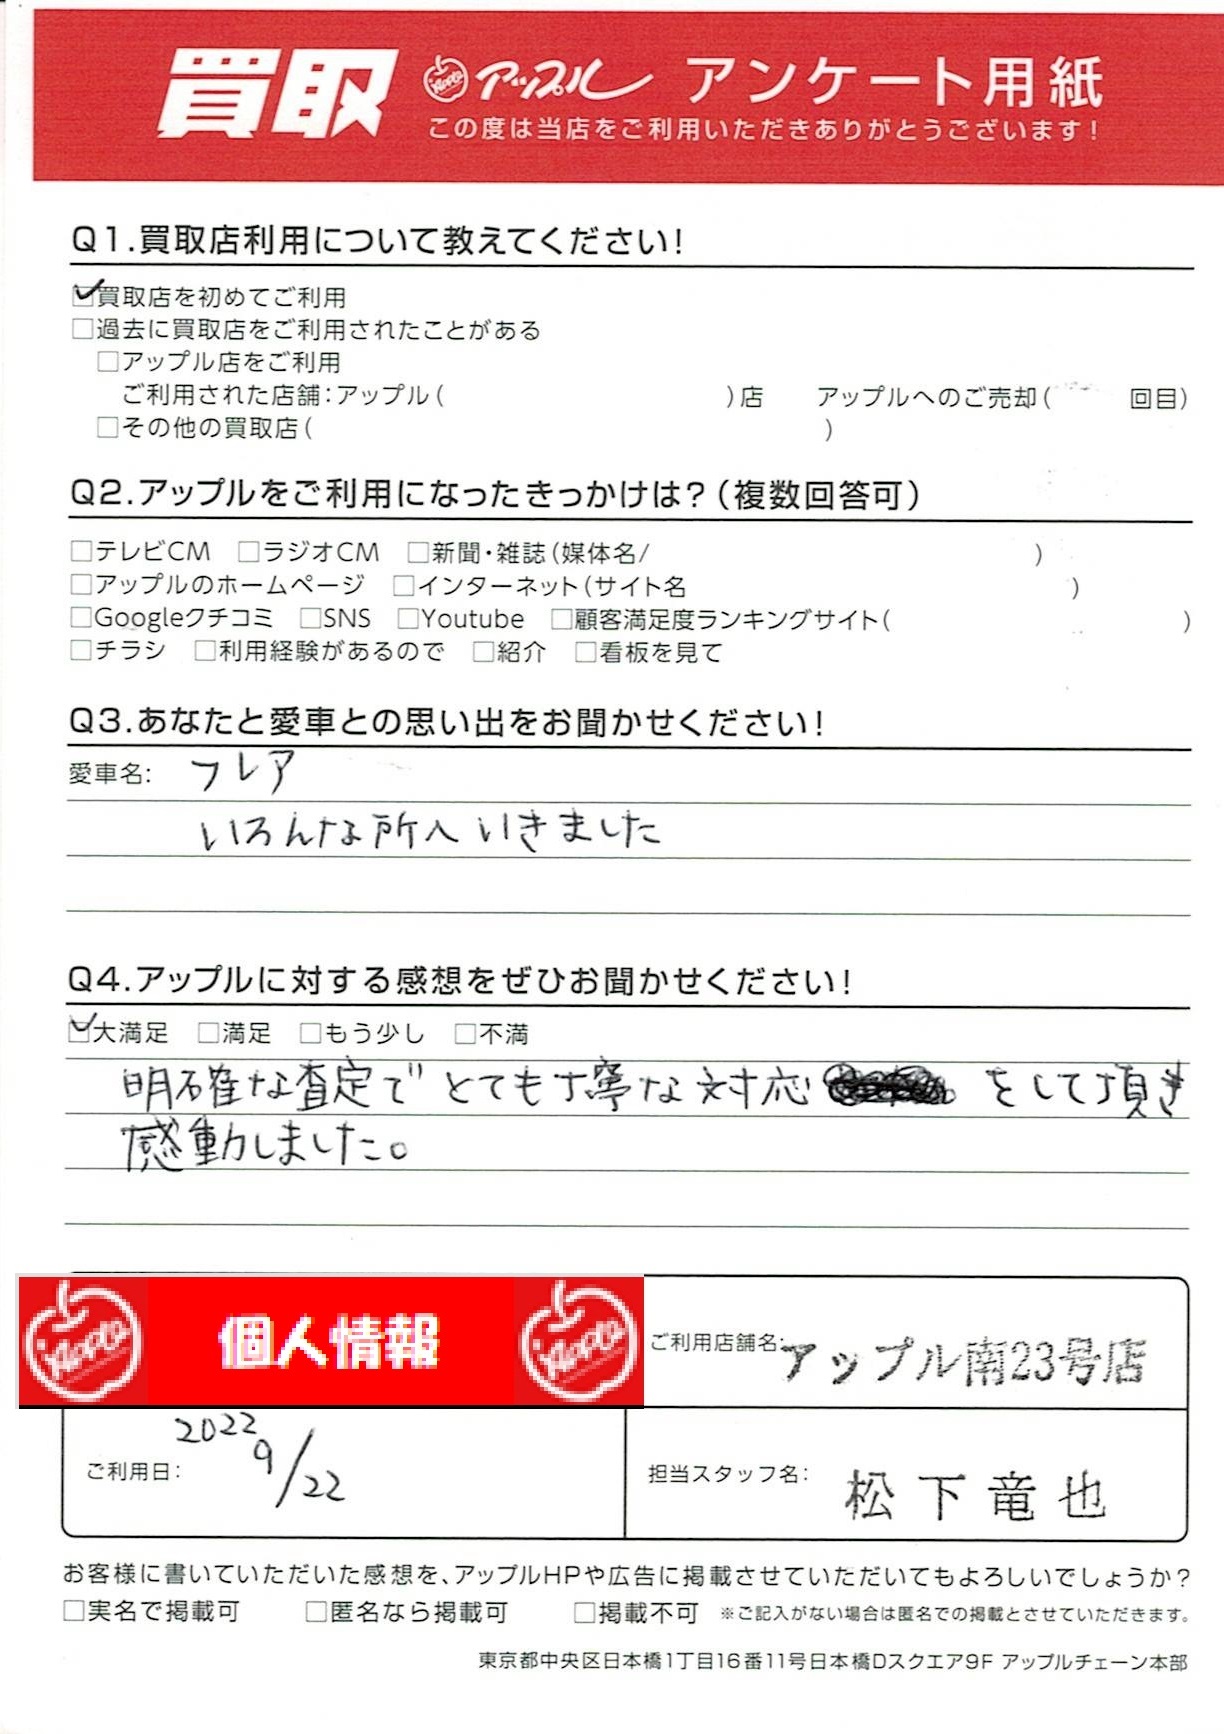 買取 アップル アンケート用紙
この度は当店をご利用いただきありがとうございます!
Q1.買取店利用について教えてください!
☑買取店を初めてご利用
□過去に買取店をご利用されたことがある
□アップル店をご利用
ご利用された店舗:アップル( )店 アップルへのご売却( 回目)
□その他の買取店( )
Q2.アップルをご利用になったきっかけは?(複数回答可)
□テレビCM □ラジオCM □新聞・雑誌(媒体名/ )
□アップルのホームページ □インターネット(サイト名 )
□Googleクチコミ □SNS □Youtube □顧客満足度ランキングサイト( )
□チラシ □利用経験があるので □紹介 □看板を見て
Q3.あなたと愛車との思い出をお聞かせください!
愛車名: フレア
いろんな所へいきました
Q4.アップルに対する感想をぜひお聞かせください!
☑大満足 □満足 □もう少し □不満
明確な査定でとても丁寧な対応をして頂き
感動しました。
Apple 個人情報 Apple
ご利用店舗名: アップル南23号店
ご利用日: 2022 9/22
担当スタッフ名: 松下竜也
お客様に書いていただいた感想を、アップルHPや広告に掲載させていただいてもよろしいでしょうか?
□実名で掲載可 □匿名なら掲載可 □掲載不可 ※ご記入がない場合は匿名での掲載とさせていただきます。
東京都中央区日本橋1丁目16番11号日本橋Dスクエア9F アップルチェーン本部